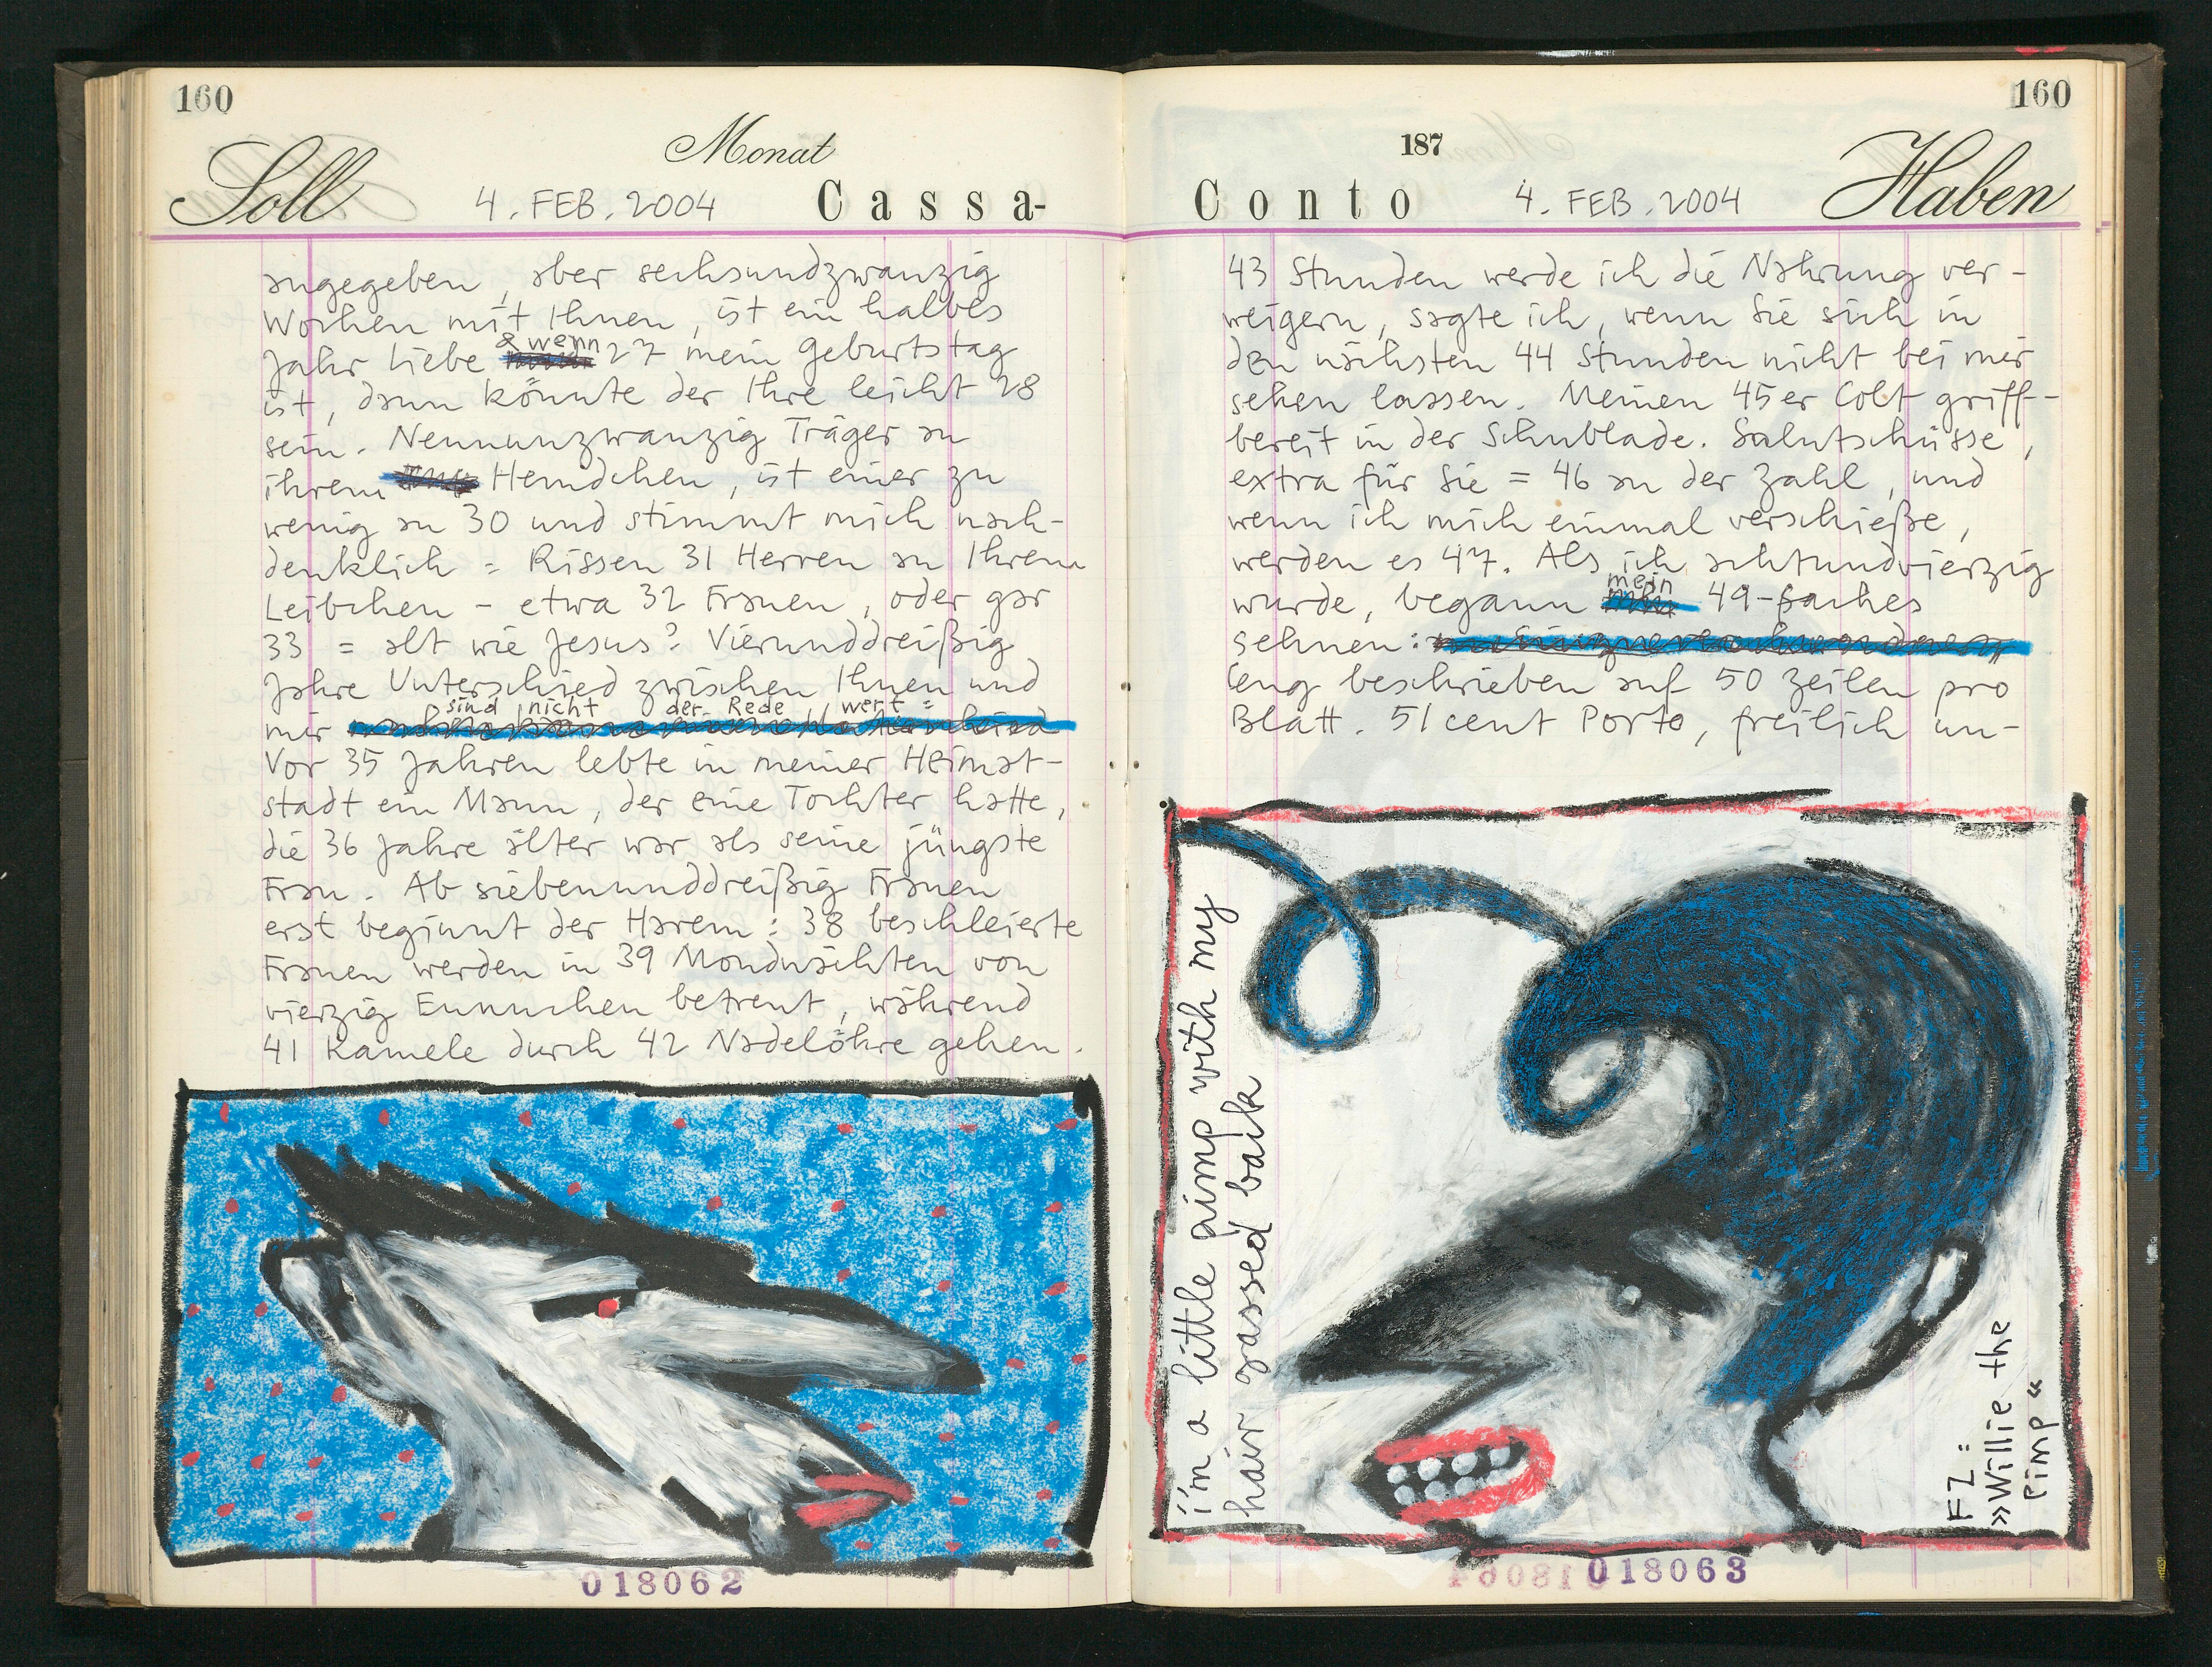 160
Soll
Monat
4. FEB. 2004
Cassa-
angegeben, aber sechsundzwanzig
Wochen mit Ihnen, ist ein halbes
Jahr Liebe & wenn 27 mein Geburtstag
ist, dann könnte der Ihre leicht 28
sein. Neunundzwanzig Träger an
ihrem Hemdchen, ist einer zu
wenig an 30 und stimmt mich nach-
denklich = Rissen 31 Herren an Ihrem
Leibchen - etwa 32 Frauen, oder gar
33 = alt wie Jesus? Vierunddreißig
Jahre Unterschied zwischen Ihnen und
mir sind nicht der Rede wert =
Vor 35 Jahren lebte in meiner Heimat-
stadt ein Mann, der eine Tochter hatte,
die 36 Jahre älter war als seine jüngste
Frau. Ab siebenunddreißig Frauen
erst beginnt der Harem: 38 beschleierte
Frauen werden in 39 Mondnächten von
vierzig Eunuchen betreut, während
41 Kamele durch 42 Nadelöhre gehen.
018062
160
187
Conto
4. FEB. 2004
Haben
43 Stunden werde ich die Nahrung ver-
weigern, sagte ich, wenn Sie sich in
den nächsten 44 Stunden nicht bei mir
sehen lassen. Meinen 45er Colt griff-
bereit in der Schublade. Salutschüsse,
extra für Sie = 46 an der Zahl, und
wenn ich mich einmal verschieße,
werden es 47. Als ich achtundvierzig
wurde, begann mein 49-faches
sehnen:
eng beschrieben auf 50 Zeilen pro
Blatt. 51 cent Porto, freilich un-
i'm a little pimp with my
hair gassed back
FZ:
»Willie the
Pimp«
018063